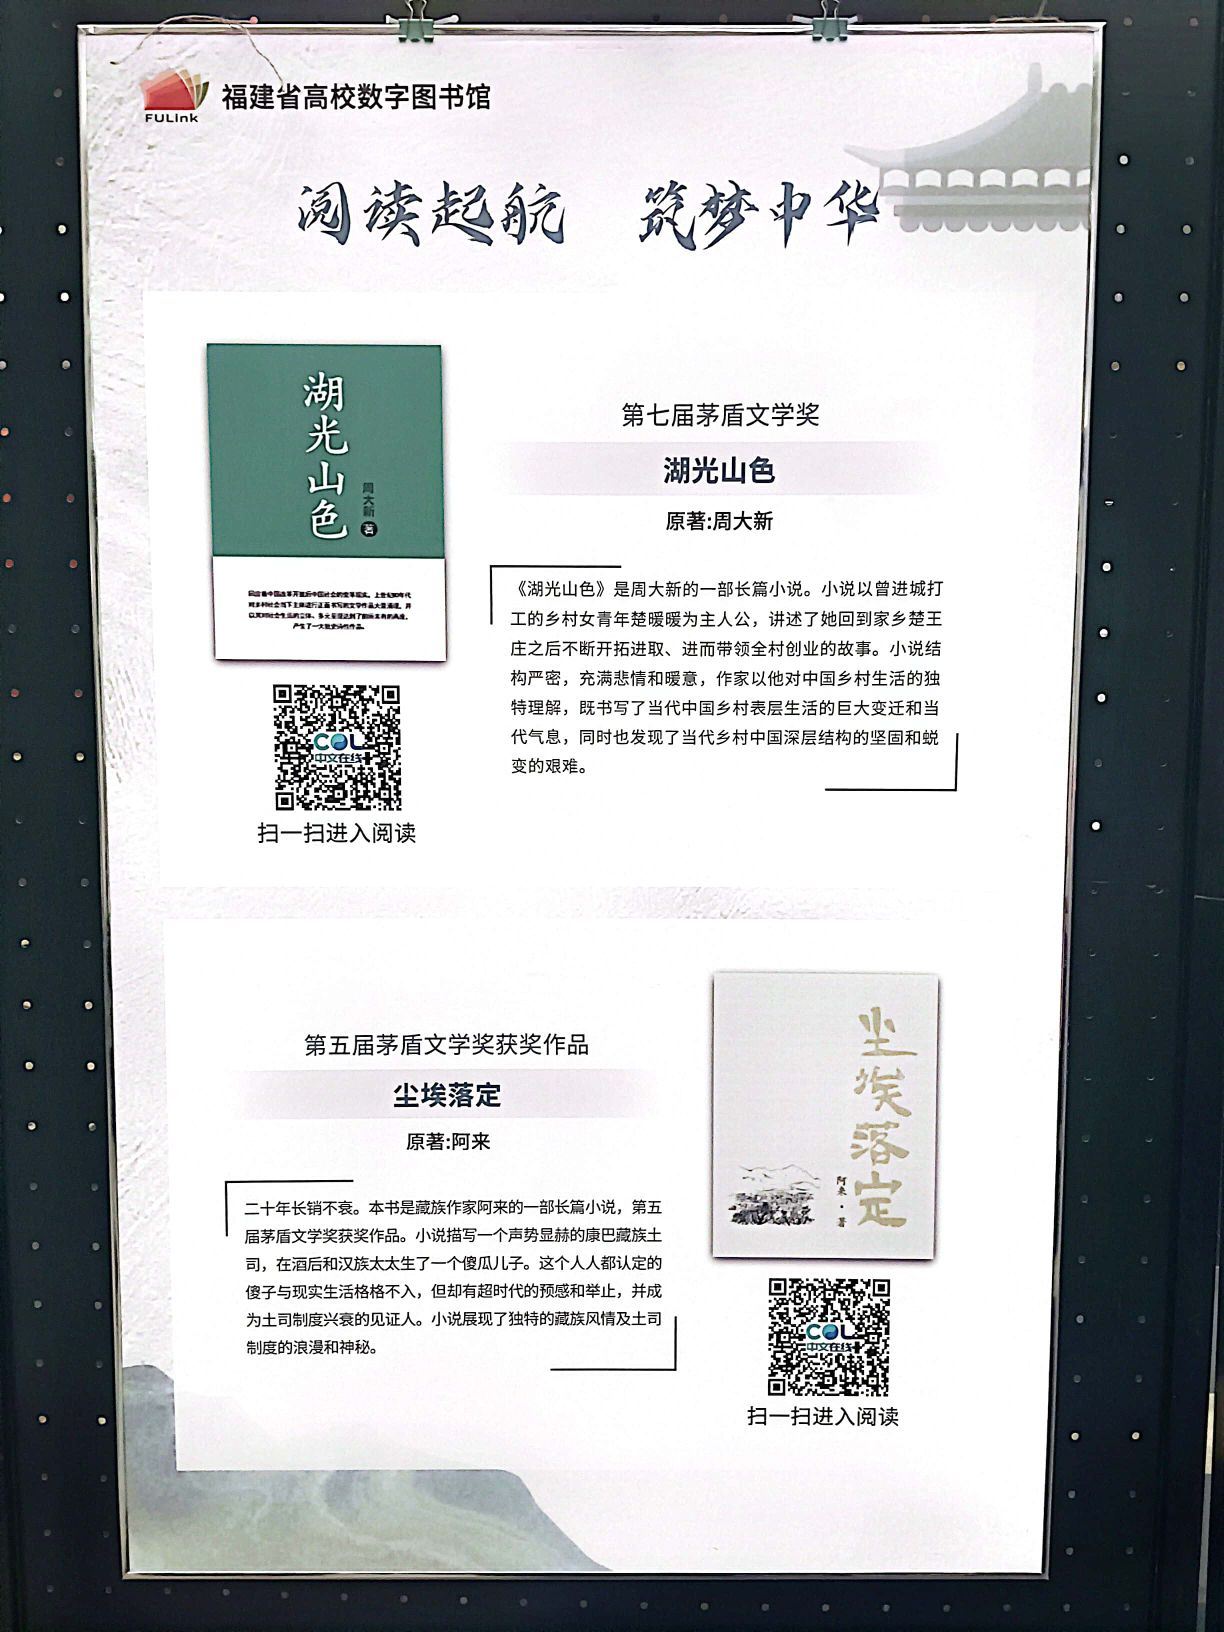 FULink
福建省高校数字图书馆
阅读起航 筑梦中华
湖光山色
周大新
著
第七届茅盾文学奖
湖光山色
原著:周大新
《湖光山色》是周大新的一部长篇小说。小说以曾进城打
工的乡村女青年楚暖暖为主人公，讲述了她回到家乡楚王
庄之后不断开拓进取、进而带领全村创业的故事。小说结
构严密，充满悲情和暖意，作家以他对中国乡村生活的独
特理解，既书写了当代中国乡村表层生活的巨大变迁和当
代气息，同时也发现了当代乡村中国深层结构的坚固和蜕
变的艰难。
COL
中文在线
扫一扫进入阅读
第五届茅盾文学奖获奖作品
尘埃落定
原著:阿来
二十年长销不衰。本书是藏族作家阿来的一部长篇小说，第五
届茅盾文学奖获奖作品。小说描写一个声势显赫的康巴藏族土
司，在酒后和汉族太太生了一个傻瓜儿子。这个人人都认定的
傻子与现实生活格格不入，但却有超时代的预感和举止，并成
为土司制度兴衰的见证人。小说展现了独特的藏族风情及土司
制度的浪漫和神秘。
尘埃落定
阿来·著
COL
中文在线
扫一扫进入阅读